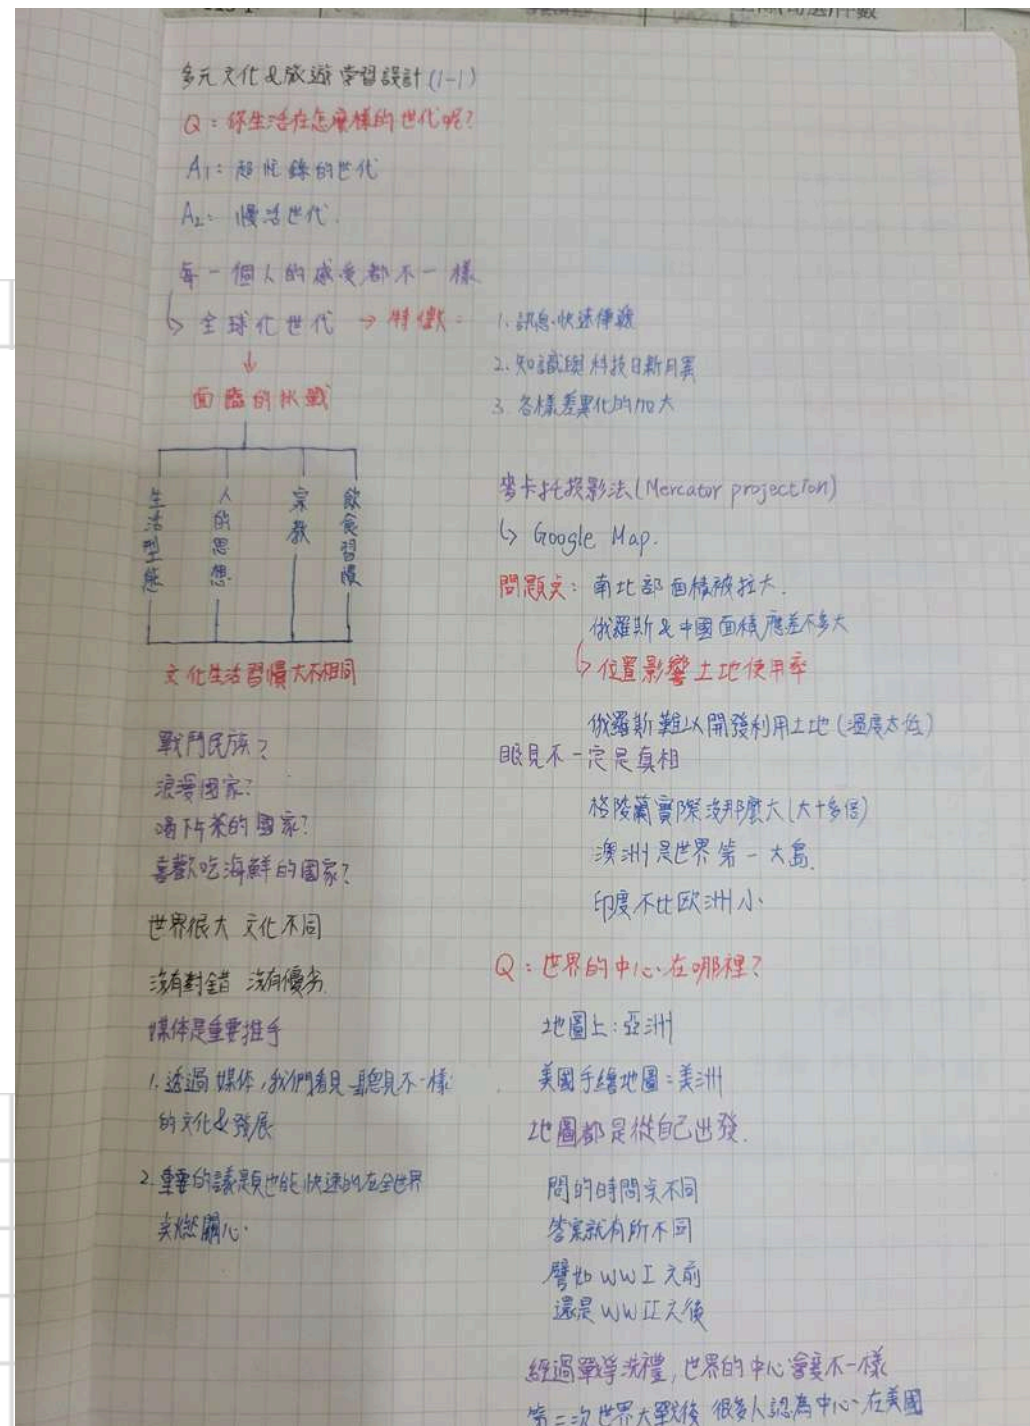 多元文化&旅遊學習設計(1-1)
Q：你生活在怎麼樣的世代呢?
A1：超忙錄的世代
A2：慢活世代.
每一個人的感受都不一樣
↳ 全球化世代 → 特徵：
1. 訊息快速傳遞
2. 知識與科技日新月異
3. 各樣差異化的加大
↓
面臨的挑戰
生活型態
人的思想
宗教
飲食習慣
文化生活習慣大不相同
戰鬥民族?
浪漫國家?
喝下午茶的國家?
喜歡吃海鮮的國家?
世界很大 文化不同
沒有對錯 沒有優劣.
媒体是重要推手
1. 透過媒体,我們看見、聽見不一樣
的文化&發展
2. 重要的議題也能快速的在全世界
關心.
麥卡托投影法(Mercator projection)
↳ Google Map.
問題點：南北部面積被拉大.
俄羅斯&中國面積應差不多大
↳ 位置影響土地使用率
俄羅斯難以開發利用土地(溫度太低)
眼見不一定是真相
格陵蘭實際沒那麼大(大十多倍)
澳洲是世界第一大島.
印度不比歐洲小.
Q：世界的中心在哪裡?
地圖上：亞洲
美國手繪地圖：美洲
地圖都是從自己出發.
問的時間點不同
答案就有所不同
譬如 WWI 之前
還是 WWII 之後
經過戰爭洗禮,世界的中心會變不一樣
第二次世界大戰後 很多人認為中心在美國